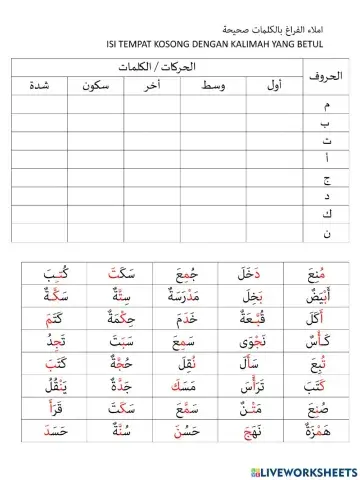 املاء الفراغ بالكلمات صحيحة
ISI TEMPAT KOSONG DENGAN KALIMAH YANG BETUL
الحروف الحركات / الكلمات
أول وسط أخر سكون شدة
م
ب
ت
أ
ج
د
ك
ن
مُنِعَ دَخَلَ جُمِعَ سَكَتَ كُتِبَ
أَبْيَضٌ بَخِلَ مَدْرَسَةٌ سِتَّةٌ سَكَّةٌ
أَكَلَ قُبَّعَةٌ خَدَمَ حِكْمَةٌ كَتَمَ
كَأْسٌ نَجْوَى سَمِعَ سَبَتَ تَجِدُ
تَبِعَ سَأَلَ نُقِلَ حُجَّةٌ كَتَبَ
كَتَبَ تَرَأَّسَ مَسَكَ جَدَّةٌ يَنْقُلُ
صُنِعَ مَتْنٌ سَمَّعَ سَكَتَ قَرَأَ
هَمْزَةٌ نَهَجَ حَسُنَ سُنَّةٌ حَسَدَ
LIVEWORKSHEETS